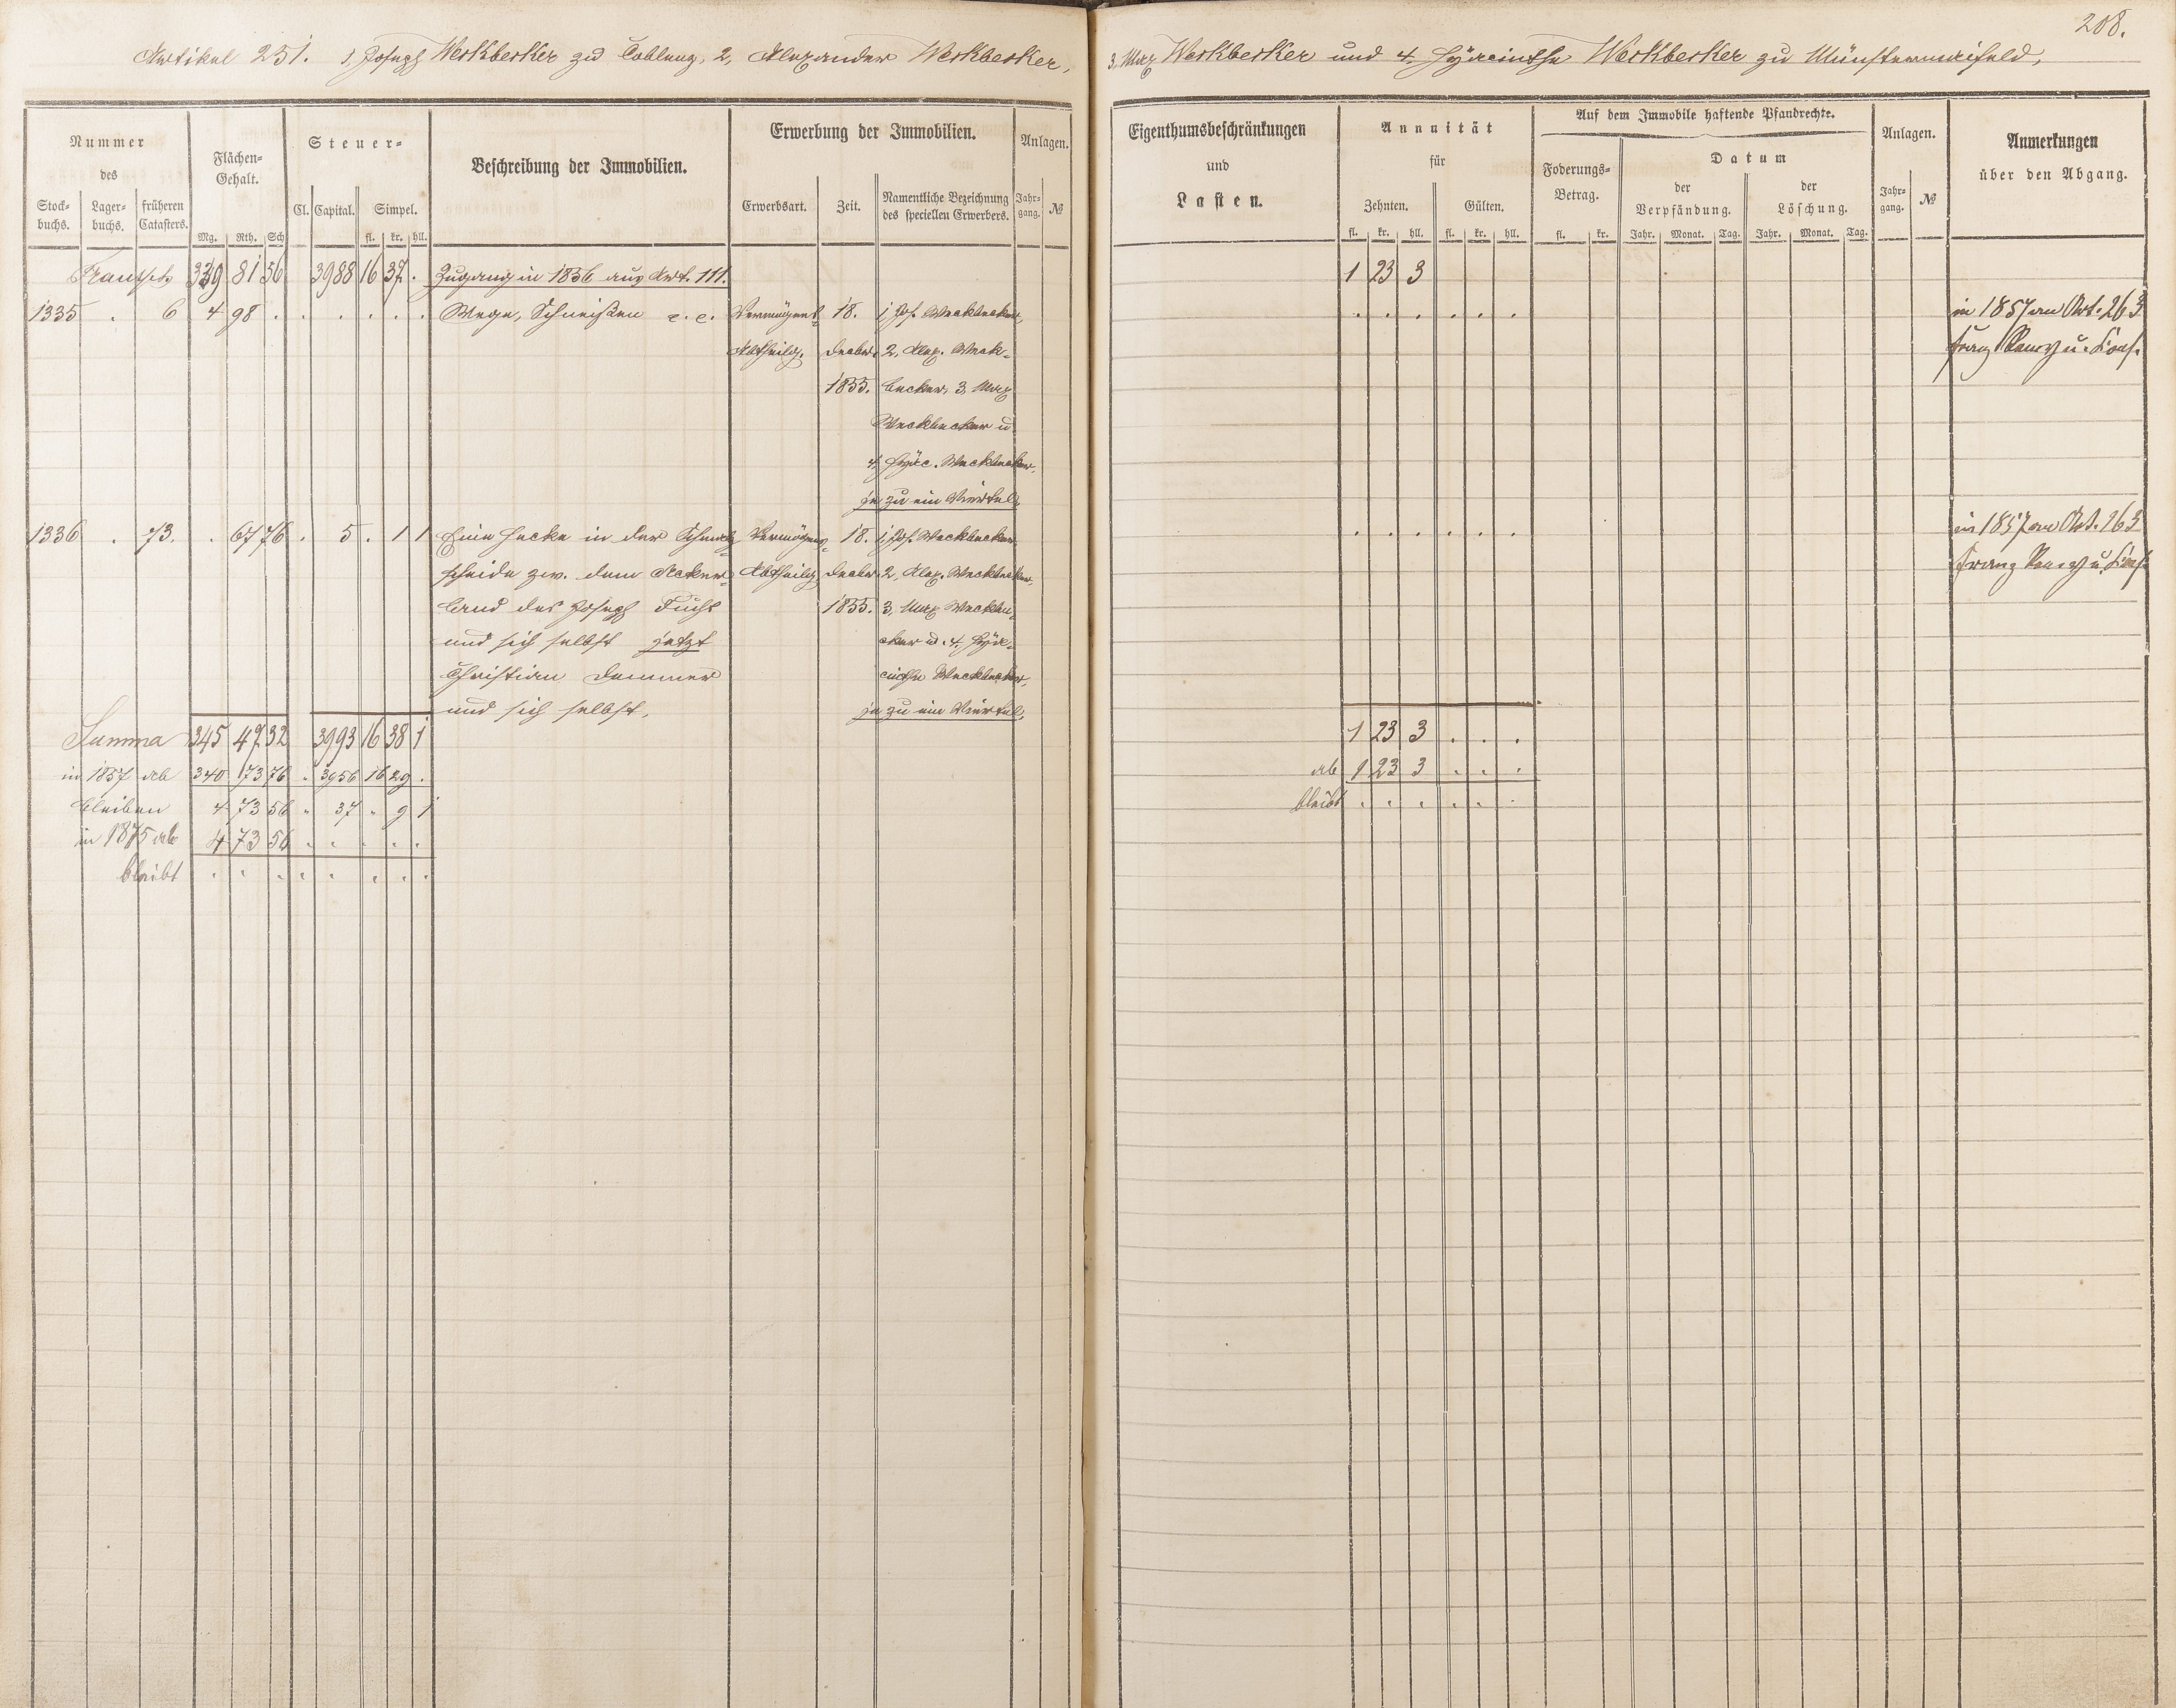 208.
Artikel 251. 1, Joseph Weckbecker zu Coblenz, 2, Alexander Weckbecker,
3, Max Weckbecker und 4, Hyacinthe Weckbecker zu Münstermaifeld,
Nummer
des
Stock-
buchs.
Lager-
buchs.
früheren
Catasters.
Flächen-
Gehalt.
Mg. Rth. Sch
Steuer-
Cl. Capital. Simpel.
fl. kr. hll.
Beschreibung der Immobilien.
Erwerbung der Immobilien.
Erwerbsart. Zeit.
Namentliche Bezeichnung
des speciellen Erwerbers.
Anlagen.
Jahr-
gang. №
Eigenthumsbeschränkungen
und
Lasten.
Annuität
für
Zehnten. Gülten.
fl. kr. hll. fl. kr. hll.
Auf dem Immobile haftende Pfandrechte.
Foderungs-
Betrag.
fl. kr.
Datum
der
Verpfändung.
der
Löschung.
Jahr. Monat. Tag. Jahr. Monat. Tag.
Anlagen.
Jahr-
gang. №
Anmerkungen
über den Abgang.
Transp. 339 81 56 3988 16 37 . Zugang in 1856 aus Art. 111. 1 23 3
1335 . 6 4 98 . . . . . . Wege, Schneißen e. c. Vermögens- 18. 1, Jos. Weckbecker, . . . . . . in 1857 an Art. 263
Abtheilg. Decbr. 2, Alex. Weck- Franz u. Cons.
1855. becker, 3, Max
Weckbecker u.
4, Hyac. Weckbecker,
je zu ein Viertel,
1336 . 73. . 67 76 . 5 . 1 1 Eine Hecke in der Vermögens- 18. 1, Jos. Weckbecker, . . . . . . in 1857 an Art. 263
scheide zw. dem Acker- Abtheilg. Decbr. 2, Alex. Weckbecker, Franz u. Cons.
land des Joseph Fuchs 1855. 3, Max Weckbe-
und sich selbst jetzt cker u. 4, Hya-
Christian Demmer cinthe Weckbecker,
und sich selbst, je zu ein Viertel,
Summa 345 47 32 3993 16 38 1 1 23 3 . . .
in 1857 ab 340 73 76 . 3956 16 29 . ab 1 23 3 . . .
bleiben 4 73 56 . 37 . 9 1 bleibt . . . . . .
in 1875 ab 4 73 56 . . . . .
bleibt . . . . . . . .